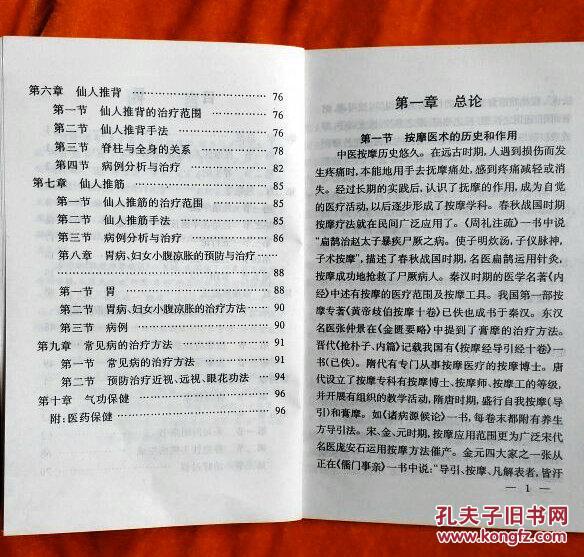 第六章 仙人推背 …………………… 76
第一节 仙人推背的治疗范围 ………… 76
第二节 仙人推背手法 ………………… 76
第三节 脊柱与全身的关系 …………… 78
第四节 病例分析与治疗 ……………… 82
第七章 仙人推筋 …………………… 85
第一节 仙人推筋的治疗范围 ………… 85
第二节 仙人推筋手法 ………………… 85
第三节 病例分析与治疗 ……………… 86
第八章 胃病、妇女小腹凉胀的预防与治疗 ……
…………………… 88
第一节 胃 …………………… 88
第二节 胃病、妇女小腹凉胀的治疗方法 …… 90
第三节 病例 …………………… 90
第九章 常见病的治疗方法 …………… 91
第一节 常见病的治疗方法 …………… 91
第二节 预防治疗近视、远视、眼花功法 …… 94
第十章 气功保健 …………………… 96
附:医药保健 …………………… 96
第一章 总论
第一节 按摩医术的历史和作用
中医按摩历史悠久。在远古时期,人遇到损伤而发
生疼痛时,本能地用手去抚摩痛处,感到疼痛减轻或消
失。经过长期的实践后,认识了抚摩的作用,成为自觉
的医疗活动,以后逐步形成了按摩学科。春秋战国时期
按摩疗法就在民间广泛应用了。《周礼注疏》一书中说
“扁鹊治赵太子暴疾尸厥之病。使子明炊汤,子仪脉神,
子术按摩”,描述了春秋战国时期,名医扁鹊运用针灸、
按摩成功地抢救了尸厥病人。秦汉时期的医学名著《内
经》中述有按摩的医疗范围及按摩工具。我国第一部按
摩专著《黄帝歧伯按摩十卷》已佚也成书于秦汉。东汉
名医张仲景在《金匮要略》中提到了膏摩的治疗方法。
晋代《抢朴子、内篇》记载我国有《按摩经导引经十卷》一
书(已佚)。隋代有专门从事按摩医疗的按摩博士。唐
代设立了按摩专科有按摩博士、按摩师、按摩工的等级,
并开展有组织的教学活动,隋唐时期,盛行自我按摩(导
引)和膏摩。如《诸病源候论》一书,每卷末都附有养生
方导引法。宋、金、元时期,按摩应用范围更为广泛宋代
名医庞安石运用按摩方法催产。金元四大家之一张从
正在《儒门事亲》一书中说:“导引、按摩、凡解表者,皆汗
— 1 —
孔夫子旧书网
KONGFZ.COM